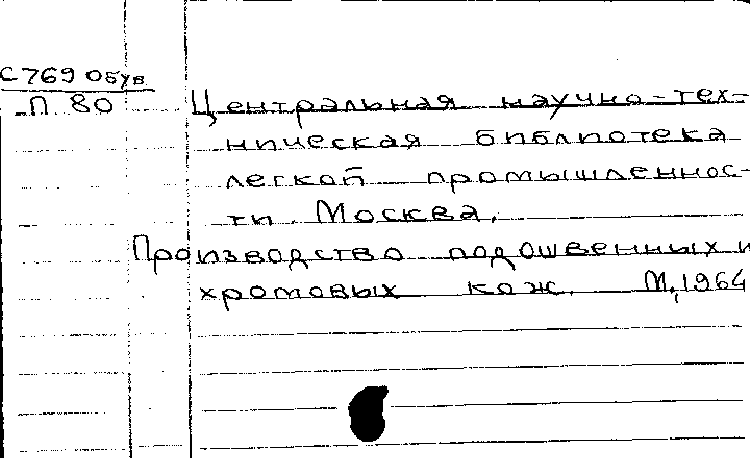 С769 Обув.
П 80 Центральная научно-тех-
ническая библиотека
легкой промышленнос-
ти. Москва.
Производство подошвенных и
хромовых кож. М., 1964